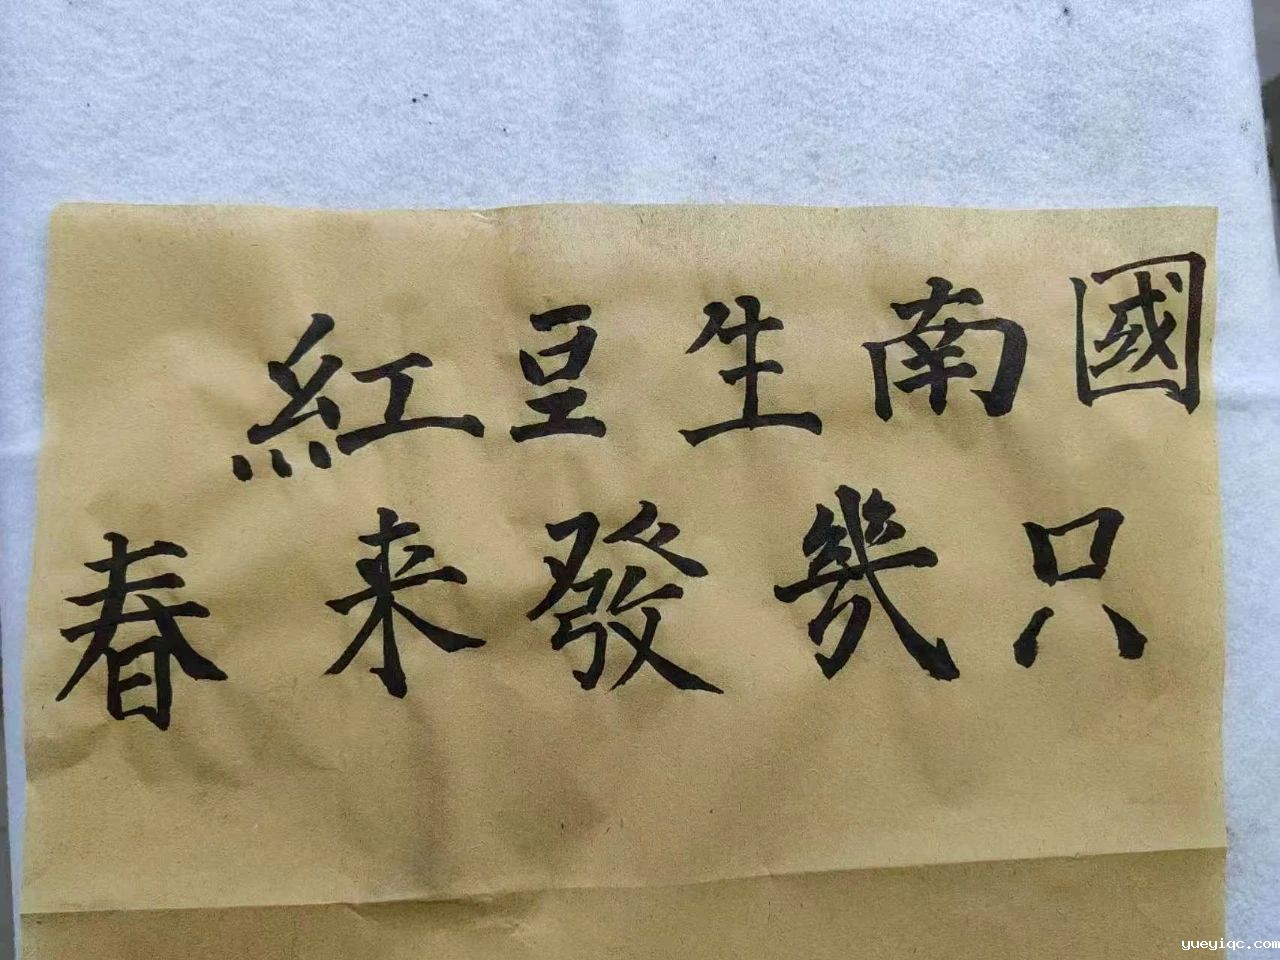 紅豆生南國
春来發幾只
yueyiqc.com